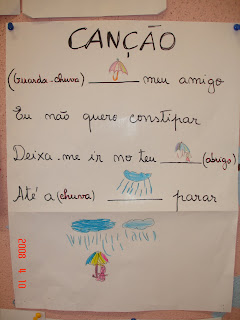 CANÇÃO
(Guarda-chuva) ______ meu amigo
Eu não quero constipar
Deixa-me ir no teu ______ (abrigo)
Até a (chuva) ______ parar
2008 4 10